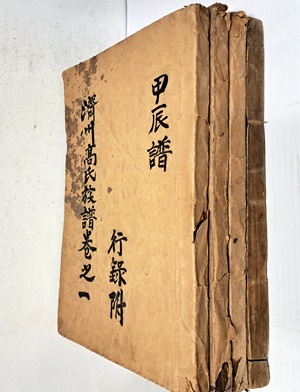 甲辰譜
行錄附
濟州高氏族譜卷之一